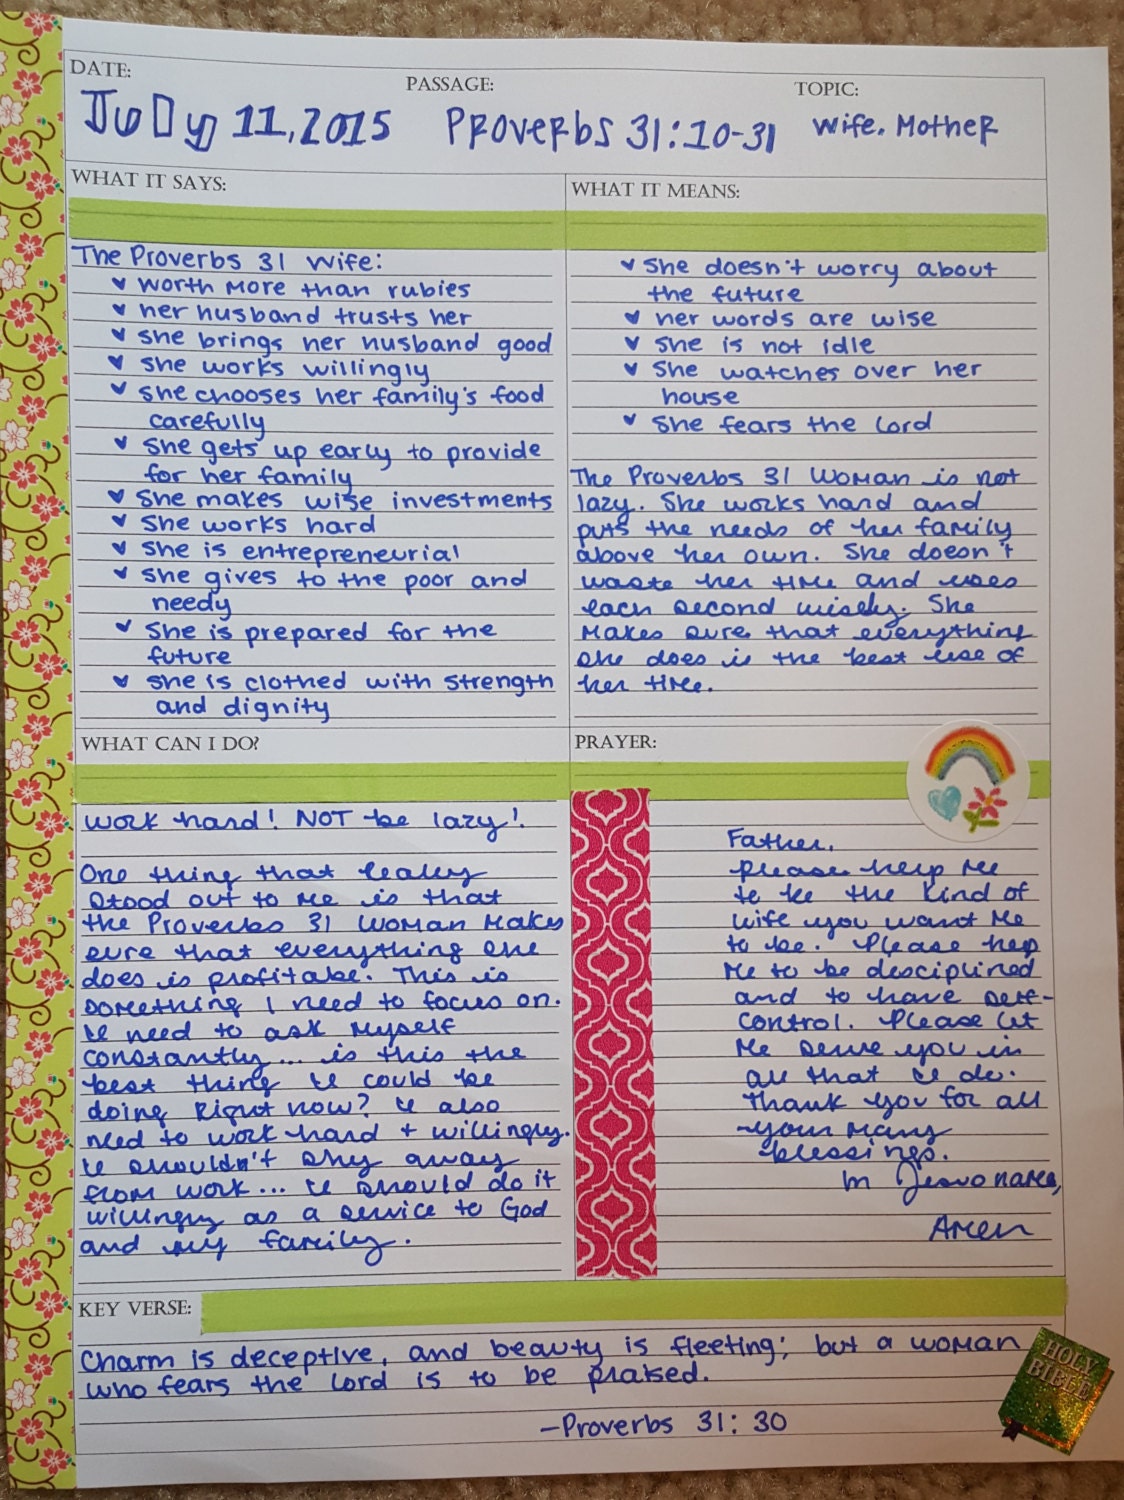 DATE:
PASSAGE:
TOPIC:
July 11, 2015
Proverbs 31:10-31
Wife, Mother
WHAT IT SAYS:
The Proverbs 31 Wife:
worth more than rubies
her husband trusts her
she brings her husband good
she works willingly
she chooses her family's food
carefully
She gets up early to provide
for her family
She makes wise investments
She works hard
She is entrepreneurial
She gives to the poor and
needy
She is prepared for the
future
She is clothed with strength
and dignity
WHAT IT MEANS:
She doesn't worry about
the future
her words are wise
She is not idle
She watches over her
house
She fears the Lord
The Proverbs 31 Woman is not
lazy. She works hard and
puts the needs of her family
above her own. She doesn't
waste her time and uses
each second wisely. She
makes sure that everything
she does is the best use of
her time.
WHAT CAN I DO?
Work hard! NOT be lazy!
One thing that really
stood out to me is that
the Proverbs 31 Woman makes
sure that everything she
does is profitabe. This is
something I need to focus on.
I need to ask myself
constantly... is this the
best thing I could be
doing right now? I also
need to work hard + willingly.
I shouldn't shy away
from work... I should do it
willingly as a service to God
and my family.
PRAYER:
Father,
please help me
to be the kind of
wife you want me
to be. Please help
me to be desciplined
and to have self-
control. Please let
me serve you in
all that I do.
Thank you for all
your many
blessings.
In Jesus name,
Amen
KEY VERSE:
Charm is deceptive, and beauty is fleeting; but a woman
who fears the Lord is to be praised.
-Proverbs 31:30
HOLY
BIBLE